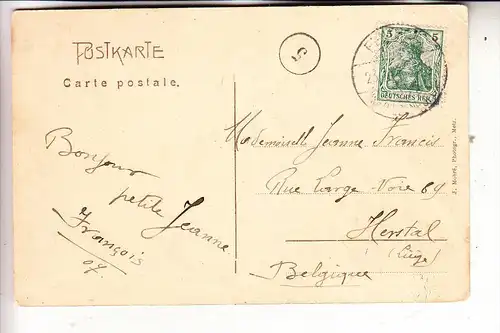 POSTKARTE
Carte postale.
5
5 5
DEUTSCHES REICH
Bonjour
petite Jeanne
François
07.
Mademoiselle Jeanne Francis
Rue Large-Voie 69
Herstal
(Liège)
Belgique
J. Mohrś, Photogr., Metz.